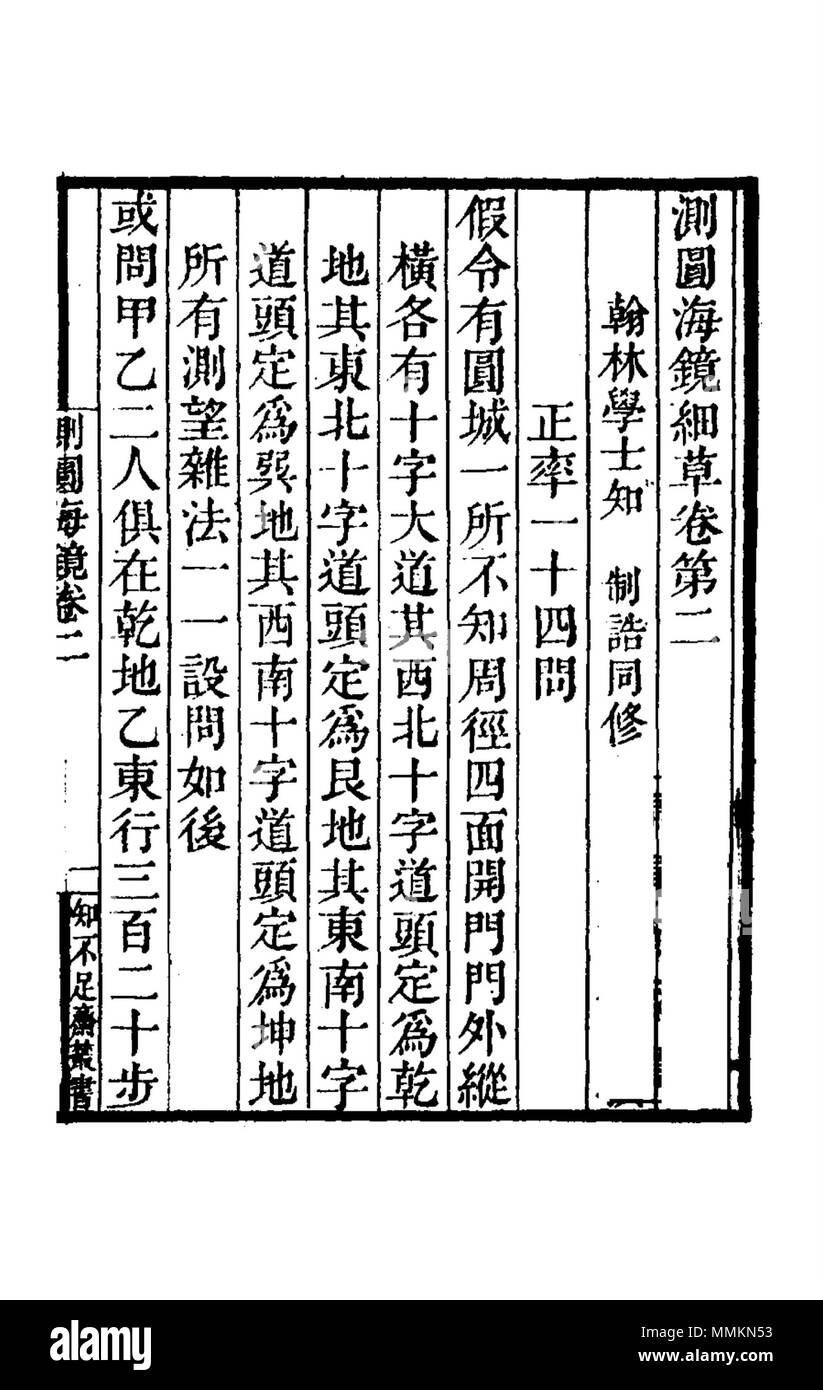 測圓海鏡細草卷第二
翰林學士知 制誥同修
正率一十四問
假令有圓城一所不知周徑四面開門門外縱
橫各有十字大道其西北十字道頭定為乾
地其東北十字道頭定為艮地其東南十字
道頭定為巽地其西南十字道頭定為坤地
所有測望雜法一一設問如後
或問甲乙二人俱在乾地乙東行三百二十步
測圓海鏡卷二
一
知不足齋叢書
alamy
Image ID: MMKN53
www.alamy.com